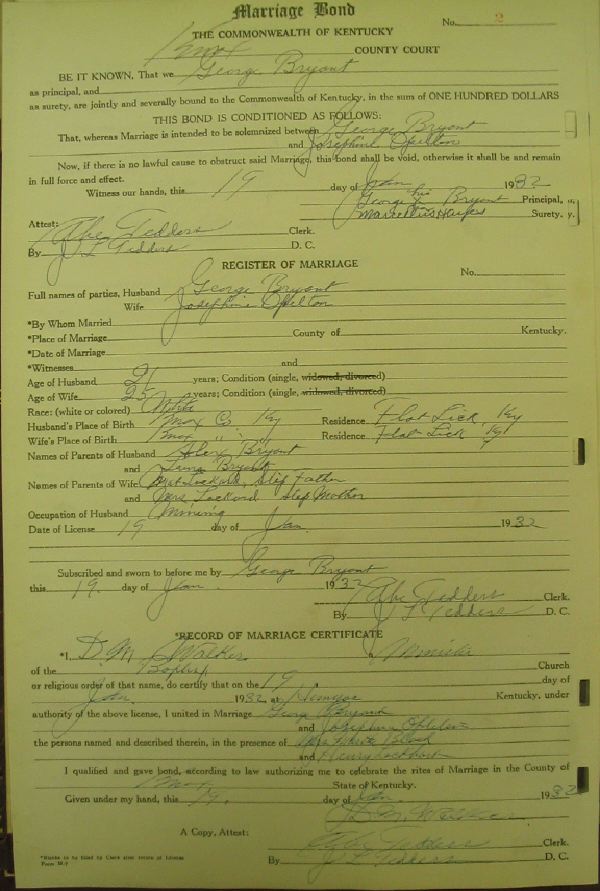 Marriage Bond
No. 2
THE COMMONWEALTH OF KENTUCKY
Knox COUNTY COURT
BE IT KNOWN, That we George Bryant
as principal, and
as surety, are jointly and severally bound to the Commonwealth of Kentucky, in the sum of ONE HUNDRED DOLLARS
THIS BOND IS CONDITIONED AS FOLLOWS:
That, whereas Marriage is intended to be solemnized between George Bryant
and Josephine
Now, if there is no lawful cause to obstruct said Marriage, this bond shall be void, otherwise it shall be and remain
in full force and effect.
Witness our hands, this 19 day of Jan 1932
George his x Bryant Principal,
Surety.
Attest:
Abe Tedders Clerk.
By J L Tedders D. C.
REGISTER OF MARRIAGE
No.
Full names of parties, Husband George Bryant
Wife Josephine
*By Whom Married
*Place of Marriage County of Kentucky.
*Date of Marriage
*Witnesses and
Age of Husband 21 years; Condition (single, widowed, divorced)
Age of Wife 25 years; Condition (single, widowed, divorced)
Race: (white or colored) White
Husband's Place of Birth Knox Co. Ky Residence Flat Lick, Ky
Wife's Place of Birth Knox " " Residence Flat Lick, Ky
Names of Parents of Husband Alex Bryant
and Bryant
Names of Parents of Wife Step Father
and Mrs Step Mother
Occupation of Husband Mining
Date of License 19 day of Jan. 1932
Subscribed and sworn to before me by George Bryant
this 19. day of Jan. 1932
Abe Tedders Clerk.
By J L Tedders D. C.
*RECORD OF MARRIAGE CERTIFICATE
*I, D M Walker Minister
of the Baptist Church
or religious order of that name, do certify that on the 19 day of
Jan 1932 at Kentucky, under
authority of the above license, I united in Marriage George Bryant
and Josephine
the persons named and described therein, in the presence of Mrs
and Henry
I qualified and gave bond, according to law authorizing me to celebrate the rites of Marriage in the County of
Knox State of Kentucky.
Given under my hand, this 19. day of Jan. 1932
D. M. Walker
A Copy, Attest:
Abe Tedders Clerk.
By J L Tedders D. C.
*Blanks to be filled by Clerk after return of License